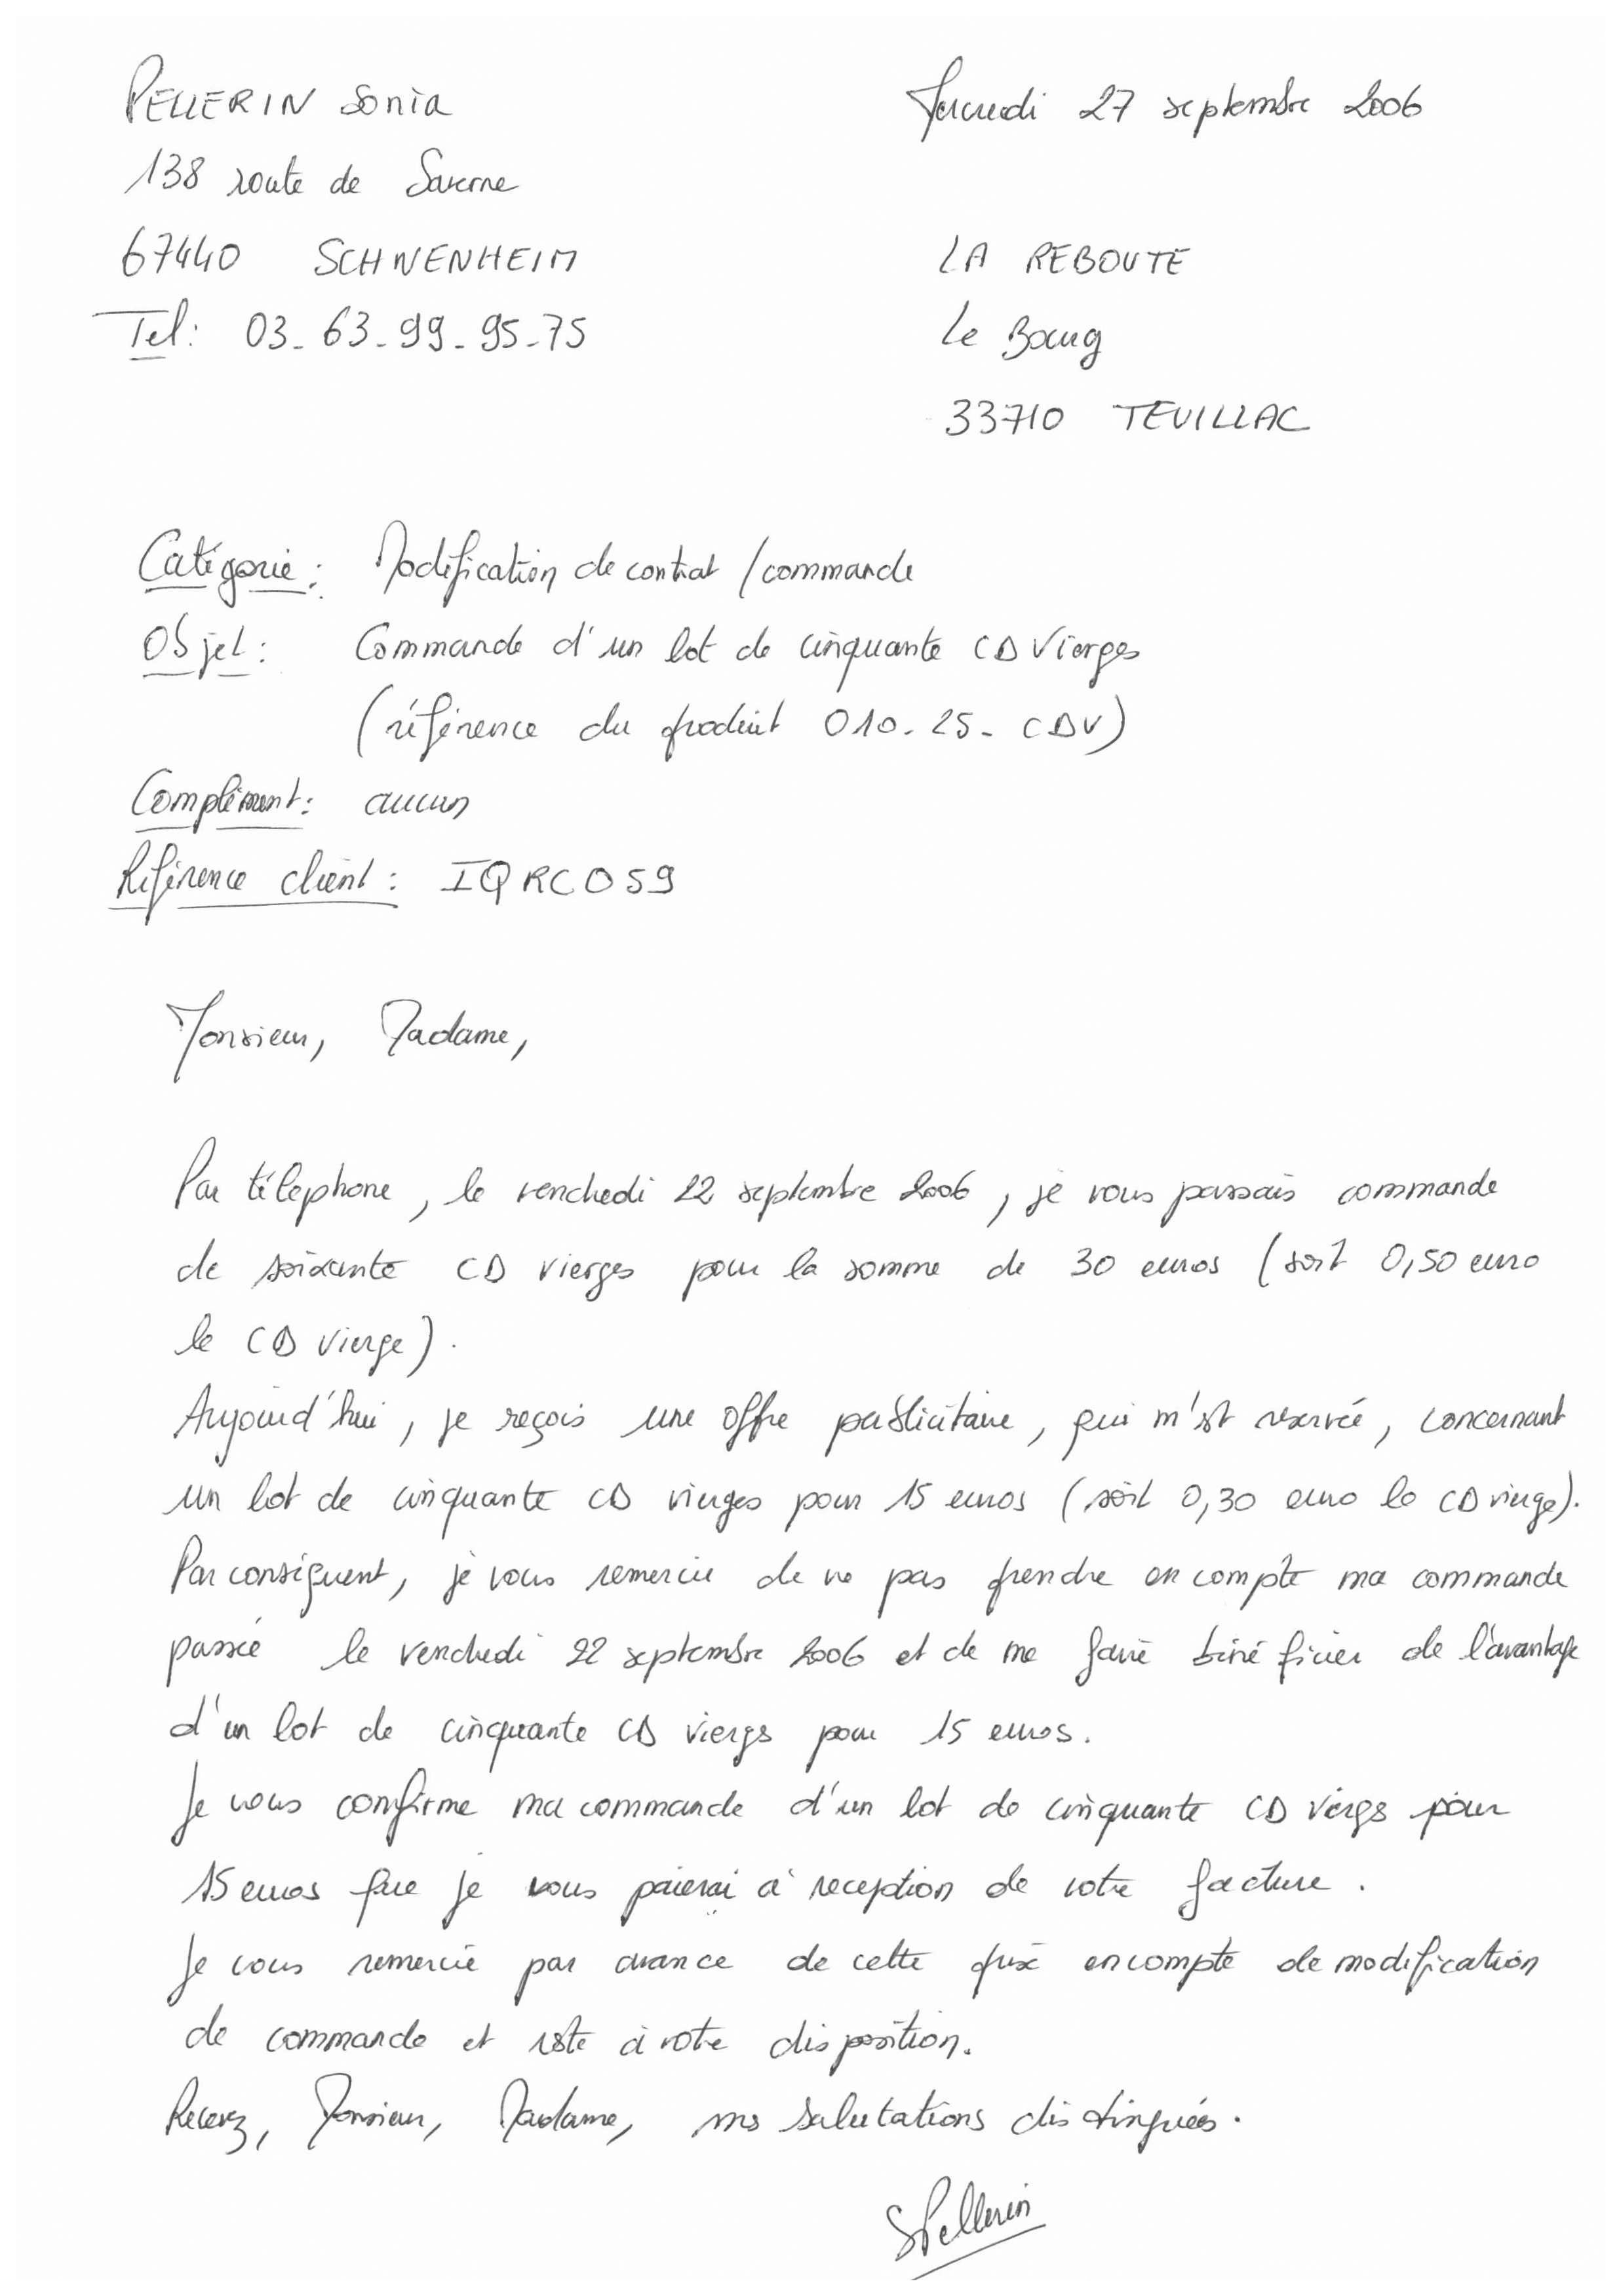 PELLERIN Sonia
Mercredi 27 septembre 2006
138 route de Saverne
67440 SCHWENHEIM
LA REBOUTE
Tel: 03-63-99-95-75
Le Bourg
33710 TEUILLAC
Catégorie: Modification de contrat / commande
Objet: Commande d'un lot de cinquante CD Vierges
(référence du produit 010-25-CDV)
Complément: aucun
Référence client: IQRCO59
Monsieur, Madame,
Par téléphone, le vendredi 22 septembre 2006, je vous passais commande
de soixante CD vierges pour la somme de 30 euros (soit 0,50 euro
le CD vierge).
Aujourd'hui, je reçois une offre publicitaire, qui m'est réservée, concernant
un lot de cinquante CD vierges pour 15 euros (soit 0,30 euro le CD vierge).
Par conséquent, je vous remercie de ne pas prendre en compte ma commande
passée le vendredi 22 septembre 2006 et de me faire bénéficier de l'avantage
d'un lot de cinquante CD vierges pour 15 euros.
Je vous confirme ma commande d'un lot de cinquante CD vierges pour
15 euros que je vous paierai à reception de votre facture.
Je vous remercie par avance de cette prise en compte de modification
de commande et reste à votre disposition.
Recevez, Monsieur, Madame, mes salutations distinguées.
SPellerin